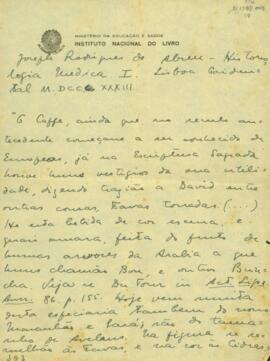 MINISTÉRIO DA EDUCAÇÃO E SAÚDE
INSTITUTO NACIONAL DO LIVRO
Joseph Rodrigues de Abreu - Histo
logia Medica I. Lisboa Ociden
tal M.DCC XXXIII
"O Caffe, ainda que no seculo an
tecedente começou a ser conhecido de
Europeos, já na Escriptura Sagrada
houve huns vestigios da sua utili
dade, dizendo trazião a David entre
outras cousas, favas torradas (...)
He esta bebida de cor escura, e
quasi amara, feita do fruto de
humas arvores da Arabia a que
huns chamão Bon, e outros Bun
cha, Veja-se Du Tour in Act. Lips.
Ann. 86. p. 155. Hoje vem muita
desta especiaria tambem do nosso
Maranhão e Pará; são do tama
nho de Avelans, na figura se